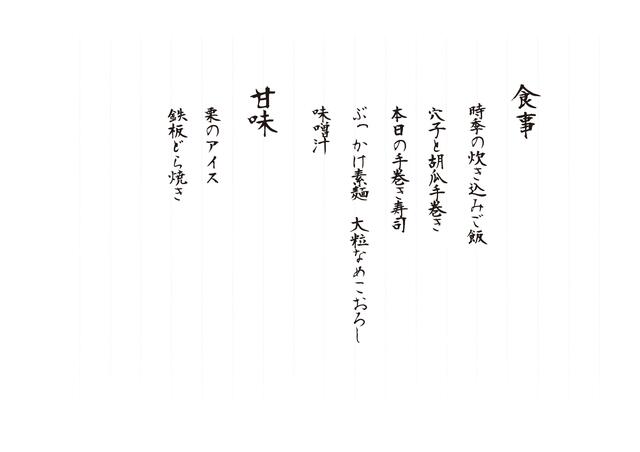 食事
時季の炊き込みご飯
穴子と胡瓜手巻き
本日の手巻き寿司
ぶっかけ素麺　大粒なめこおろし
味噌汁
甘味
栗のアイス
鉄板どら焼き